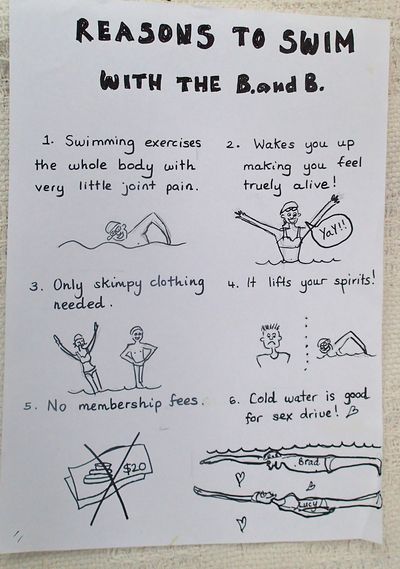 REASONS TO SWIM
WITH THE B.and B.
1. Swimming exercises
the whole body with
very little joint pain.
2. Wakes you up
making you feel
truely alive!
YaY!!
3. Only skimpy clothing
needed.
4. It lifts your spirits!
5. No membership fees.
$20
6. Cold water is good
for sex drive!
Brad
Lucy